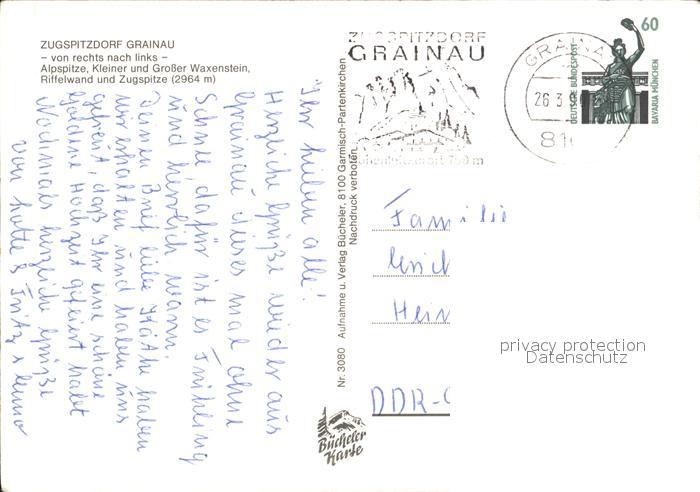 ZUGSPITZDORF GRAINAU
– von rechts nach links –
Alpspitze, Kleiner und Großer Waxenstein,
Riffelwand und Zugspitze (2964 m)
Ihr lieben alle!
Herzliche Grüße wieder aus
Grainau dieses mal ohne
Schnee dafür ist es Frühling
und herrlich warm.
Deinen Brief liebe Käthe haben
wir erhalten und haben uns
gefreut, daß Ihr eine schöne
goldene Hochzeit gefeiert habt
Nochmals herzliche Grüße
von Lotte & Fritz &
Nr. 3080 Aufnahme u. Verlag Bücheler, 8100 Garmisch-Partenkirchen
Nachdruck verboten
Bücheler
Karte
ZUGSPITZDORF
GRAINAU
750 m
GRAINA
26.3
810
60
DEUTSCHE BUNDESPOST
BAVARIA MÜNCHEN
Familie
Hein
DDR-
privacy protection
Datenschutz